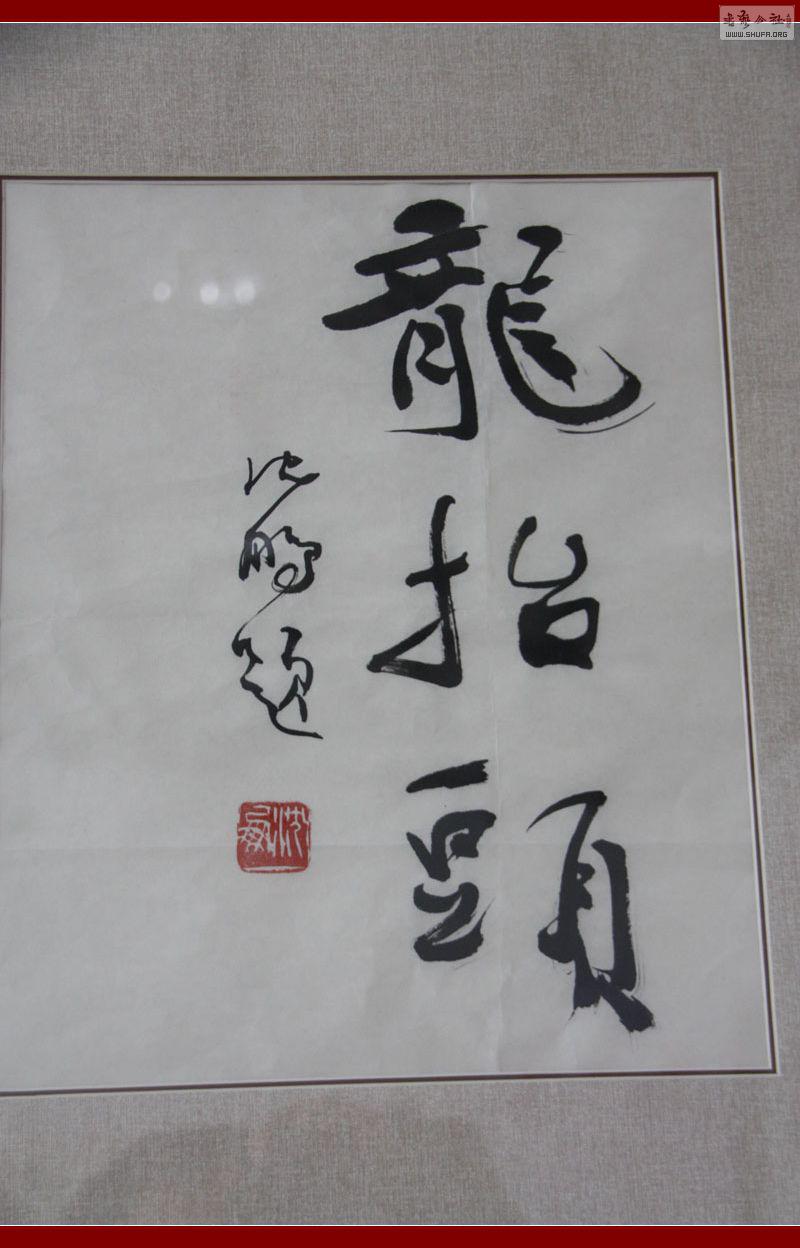 龍抬頭
沈鵬題
書藝公社
WWW.SHUFA.ORG